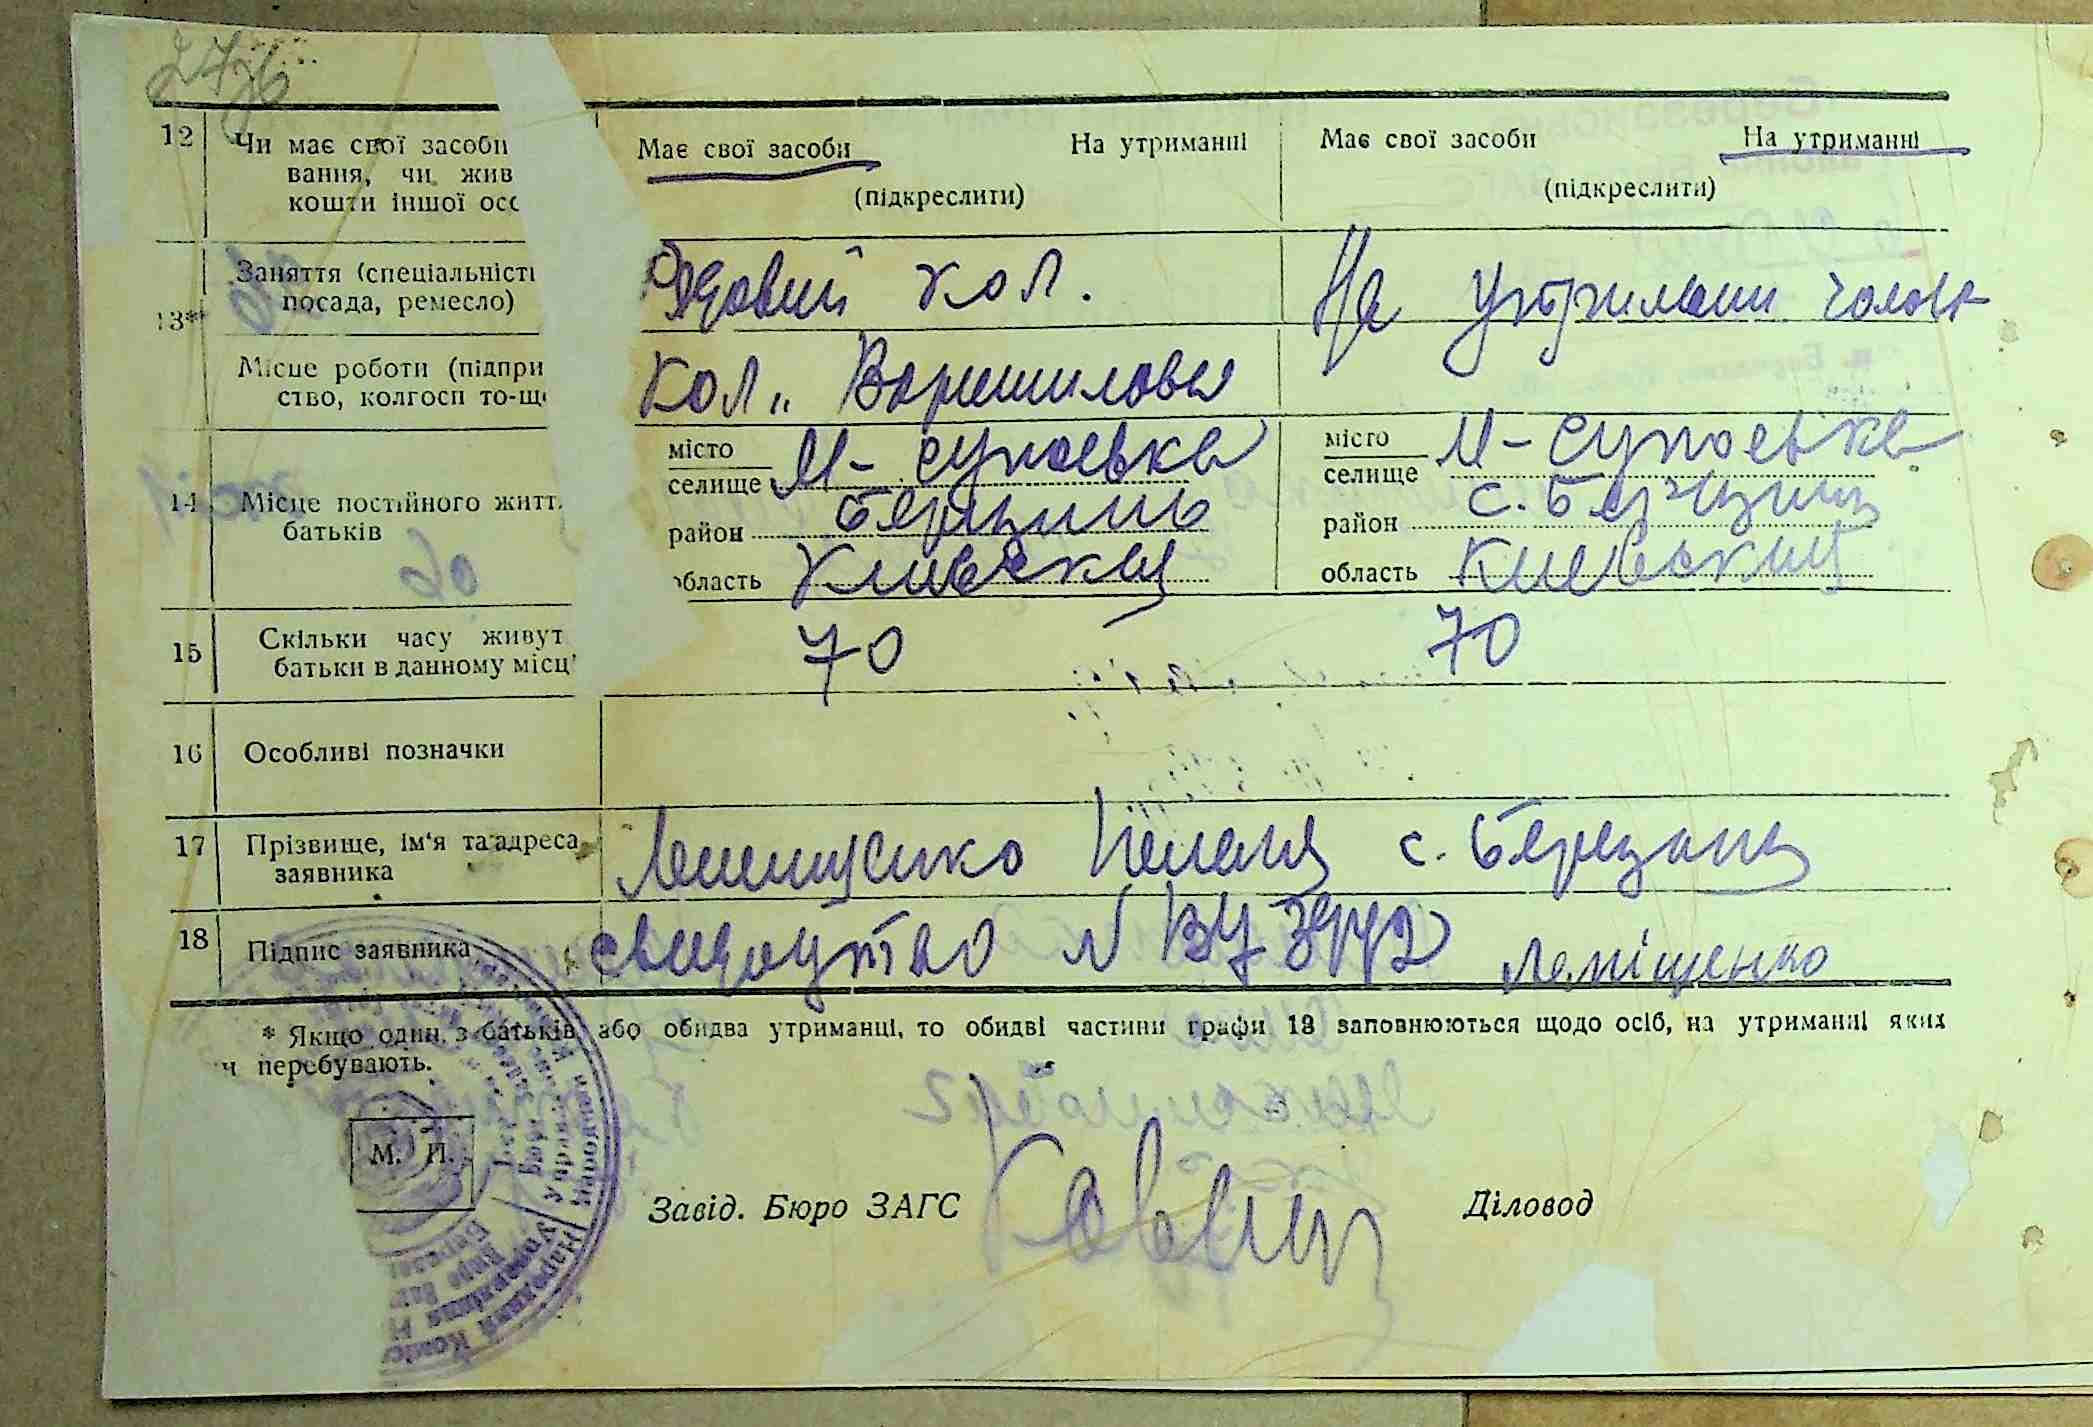 12 Чи має свої засоби
вання, чи жив
кошти іншої осо
Має свої засоби На утриманні
(підкреслити)
Має свої засоби На утриманні
(підкреслити)
13** Заняття (спеціальність
посада, ремесло)
Рядовий кол.
На утримани чолов
Місце роботи (підпри
ство, колгосп то-що
Кол. „Ворошилова
14 Місце постійного житт
батьків
місто
селище М-Супоевка
район Березань
область Киевский
місто
селище М-Супоевка
район с. Березань
область Киевский
15 Скільки часу живут
батьки в данному місц
70 70
16 Особливі позначки
17 Прізвище, ім'я та адреса
заявника
Лемищенко Пелагея с. Березань
18 Підпис заявника
свидоцтво N ВУ Леміщенко
* Якщо один з батьків або обидва утриманці, то обидві частини графи 13 заповнюються щодо осіб, на утриманні яких
перебувають.
М. П.
Завід. Бюро ЗАГС
Діловод